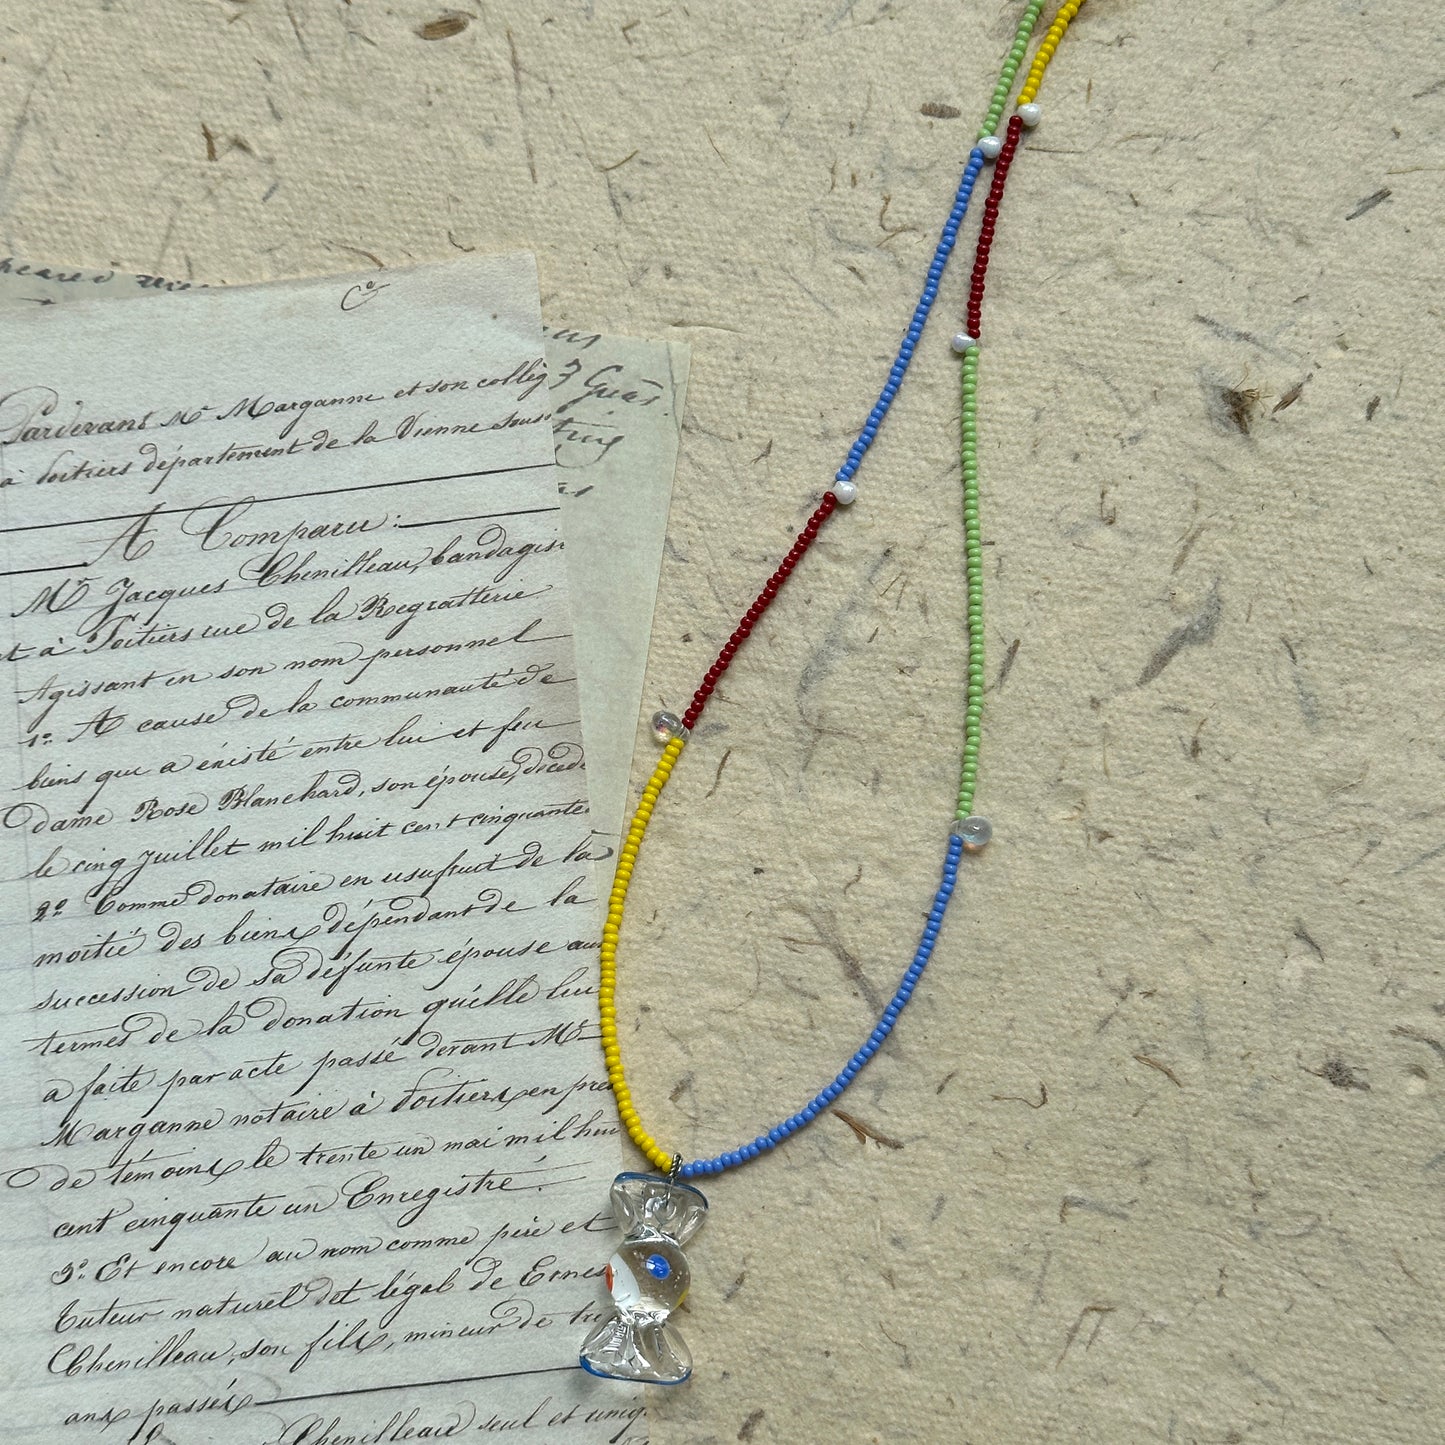 Co
Pardevant Me Marganne et son collèg
à Poitiers département de la Vienne sous
A Comparu :
Mr Jacques Chenilleau, bandagis
nt à Poitiers rue de la Regratterie
Agissant en son nom personnel
1o. A cause de la communauté de
biens qui a éxisté entre lui et feu
dame Rose Blanchard, son épouse, décéd
le cinq Juillet mil huit cent cinquante
2o Comme donataire en usufruit de la
moitié des biens dépendant de la
succession de sa défunte épouse aux
termes de la donation qu'elle lui
a faite par acte passé devant Me
Marganne notaire à Poitiers, en pré
de témoins, le trente un mai mil hui
cent cinquante un Enregistré.
3o. Et encore au nom comme père et
tuteur naturel et légal de Ernes
Chenilleau, son fils, mineur de tre
ans passés
Chenilleau seul et uniq